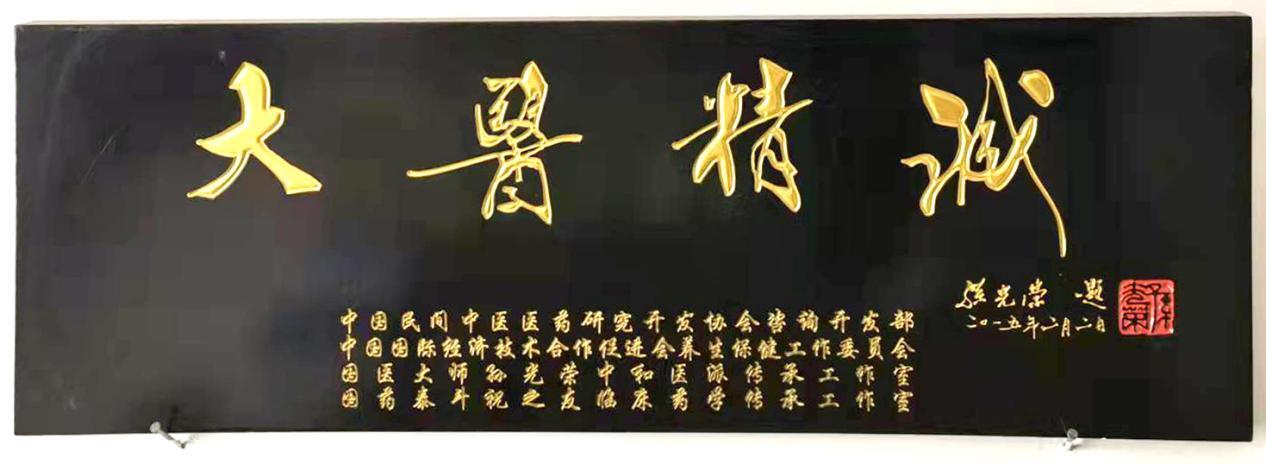 大醫精誠
孫光荣 题
二〇一五年二月二日
孫光榮
中国民间中医医药研究开发协会咨询开发部
中国国际经济技术合作促进会养生保健工作委员会
国医大师孙光荣中和医派传承工作室
国药泰斗祝之友临床药学传承工作室